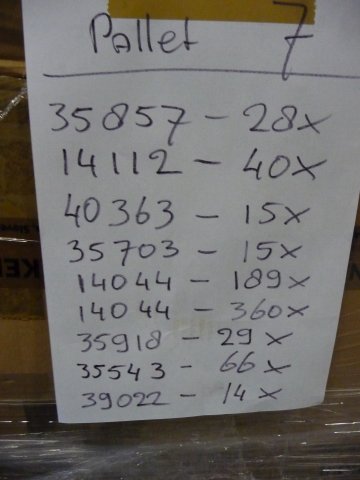 Pallet 7
35857 - 28x
14112 - 40x
40363 - 15x
35703 - 15x
14044 - 189x
14044 - 360x
35918 - 29x
35543 - 66x
39022 - 14x